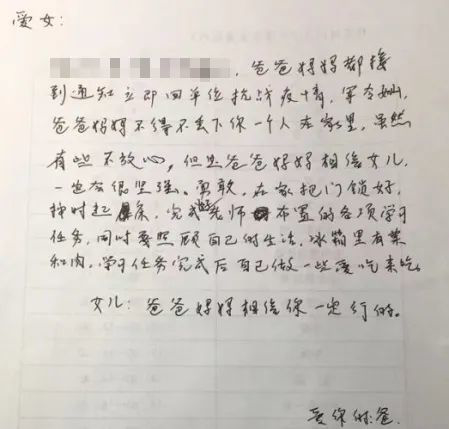 爱女:
,爸爸妈妈都接
到通知立即回单位抗战疫情,军令如山,
爸爸妈妈不得不丢下你一个人在家里,虽然
有些不放心,但是爸爸妈妈相信女儿,
一定很坚强、勇敢,在家把门锁好,
按时起床,完成好老师布置的各项学习
任务,同时要照顾自己的生活,冰箱里有菜
和肉,学习任务完成后自己做一些爱吃来吃。
女儿:爸爸妈妈相信你一定行的。
爱你的爸